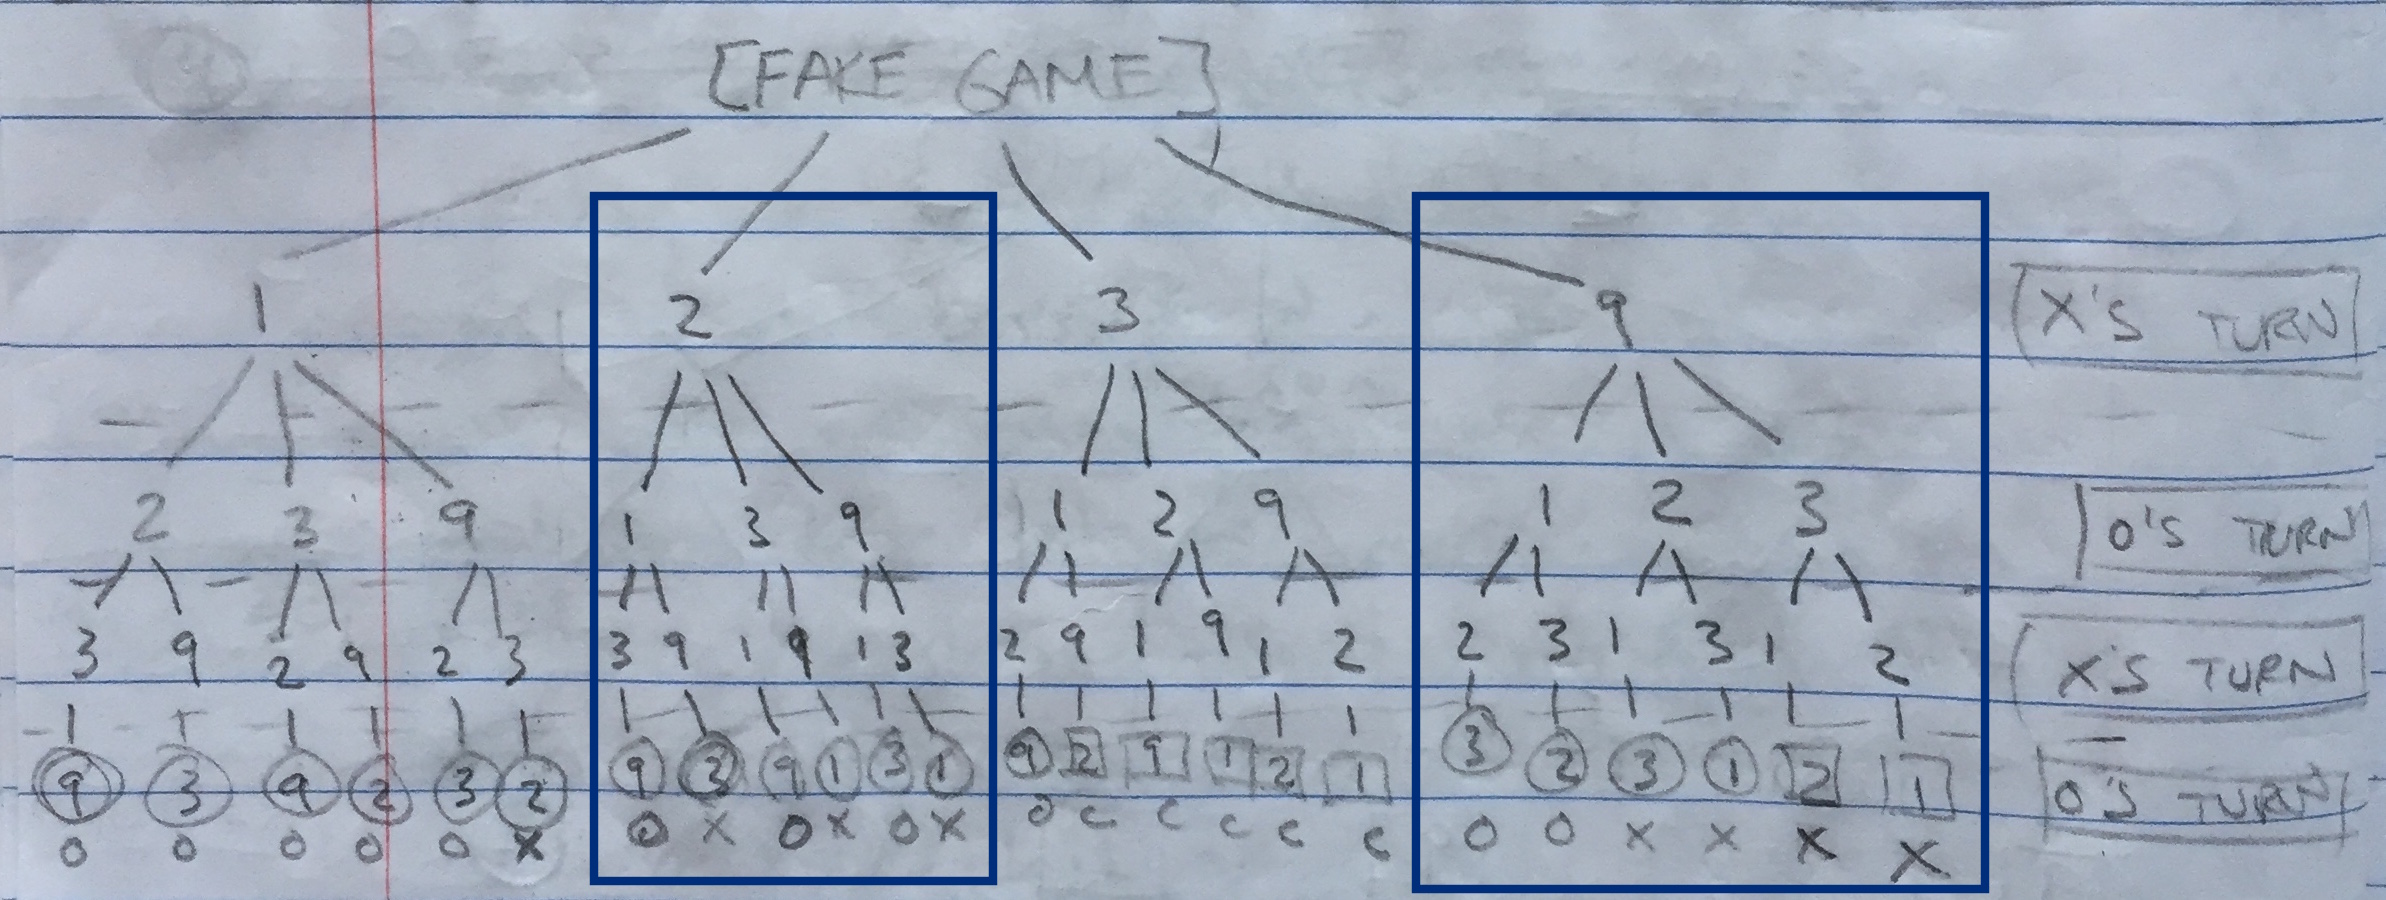 [FAKE GAME]
1 2 3 9 X'S TURN
2 3 9 1 3 9 1 2 9 1 2 3 O'S TURN
3 9 2 9 2 3 3 9 1 9 1 3 2 9 1 9 1 2 2 3 1 3 1 2 X'S TURN
9 3 9 2 3 2 9 3 9 1 3 1 9 2 9 1 2 1 3 2 3 1 2 1 O'S TURN
O O O O O X O X O X O X O C C C C C O O X X X X